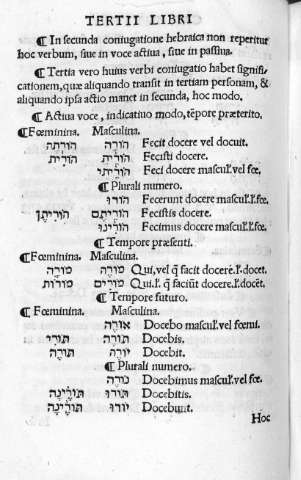 TERTII LIBRI
¶ In secunda coniugatione hebraica non reperitur
hoc verbum, siue in voce actiua, siue in passiua.
¶ Tertia vero huius verbi coniugatio habet signifi-
cationem, quæ aliquando transit in tertiam personam, &
aliquando ipsa actio manet in secunda, hoc modo.
¶ Actiua voce, indicatiuo modo, tēpore præterito.
Fœminina. Masculina.
הורתה הורה Fecit docere vel docuit.
הורית הורית Fecisti docere.
הוריתי Feci docere mascul. vel fœ.
¶ Plurali numero.
הורו Fecerunt docere mascul.l.fœ.
הוריתן הוריתם Fecistis docere.
הורינו Fecimus docere mascul.l.fœ.
¶ Tempore præsenti.
¶ Fœminina. Masculina.
מורה מורה Qui, vel q̄ facit docere.l.docet.
מורות מורים Qui.l. q̄ faciūt docere.l.docēt.
¶ Tempore futuro.
¶ Fœminina. Masculina.
אורה Docebo mascul. vel fœmi.
תורי תורה Docebis.
תורה יורה Docebit.
¶ Plurali numero.
נורה Docebimus mascul. vel fœ.
תורינה תורו Docebitis.
תורינה יורו Docebunt.
Hoc